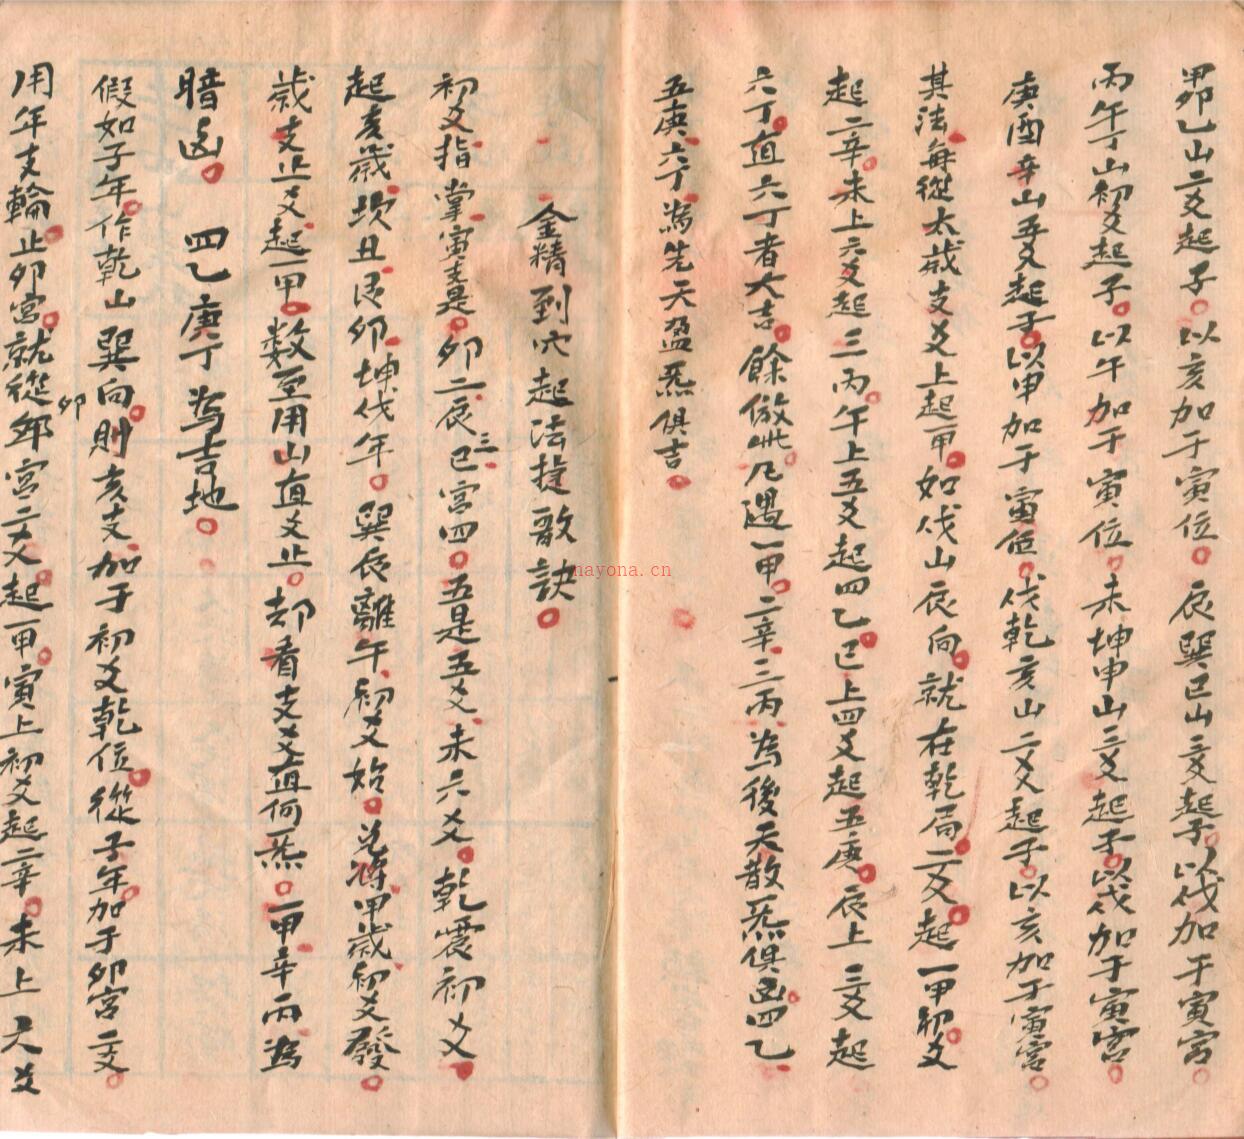 甲卯乙山二爻起子。以亥加于寅位。辰巽巳山三爻起子。以戌加于寅宫。
丙午丁山初爻起子。以午加于寅位。未坤申山三爻起子。以戌加于寅宫。
庚酉辛山五爻起子。以甲加于寅位。戌乾亥山二爻起子。以亥加于寅宫。
其法每從太歲支爻上起甲。如戌山辰向。就在乾局二爻起一甲初爻
起二辛。未上六爻起三丙。午上五爻起四乙。巳上四爻起五庚。辰上三爻起
六丁。直六丁者大吉。餘倣此。凡遇一甲。二辛。三丙。為後天散炁俱凶。四乙
五庚。六丁。為先天盈炁俱吉。
金精到穴起法捷歌訣。
初爻指掌寅支是。卯二辰三巳宫四。五是五爻未六爻。乾震初爻
起亥歲坎丑艮卯坤戌年。巽辰離午初爻始。兑將甲歲初爻發。
歲支止爻起一甲。数至用山直爻止。却看支爻直何炁。一甲辛丙為
暗凶。四乙庚丁為吉地。
假如子年作乾山巽向。則亥支加于初爻乾位。從子年加于卯宫二爻。
用年支輪止卯宫。就從卯宫二爻起一甲。寅上初爻起二辛。未上六爻
卯
nayona.cn